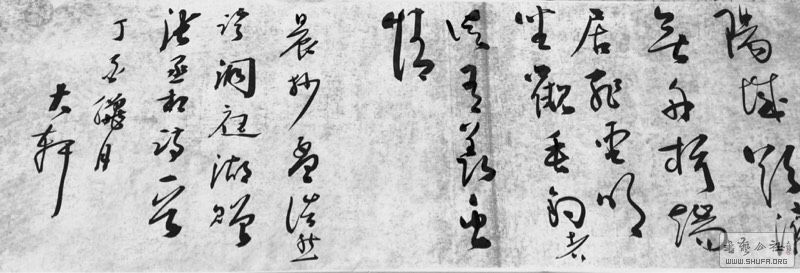 陽城欲濟
無舟楫端
居恥聖明
坐觀垂釣者
徒有羨魚
情
晨抄孟浩然
望洞庭湖贈
張丞相詩一首
丁酉臘月
大軒
WWW.SHUFA.ORG